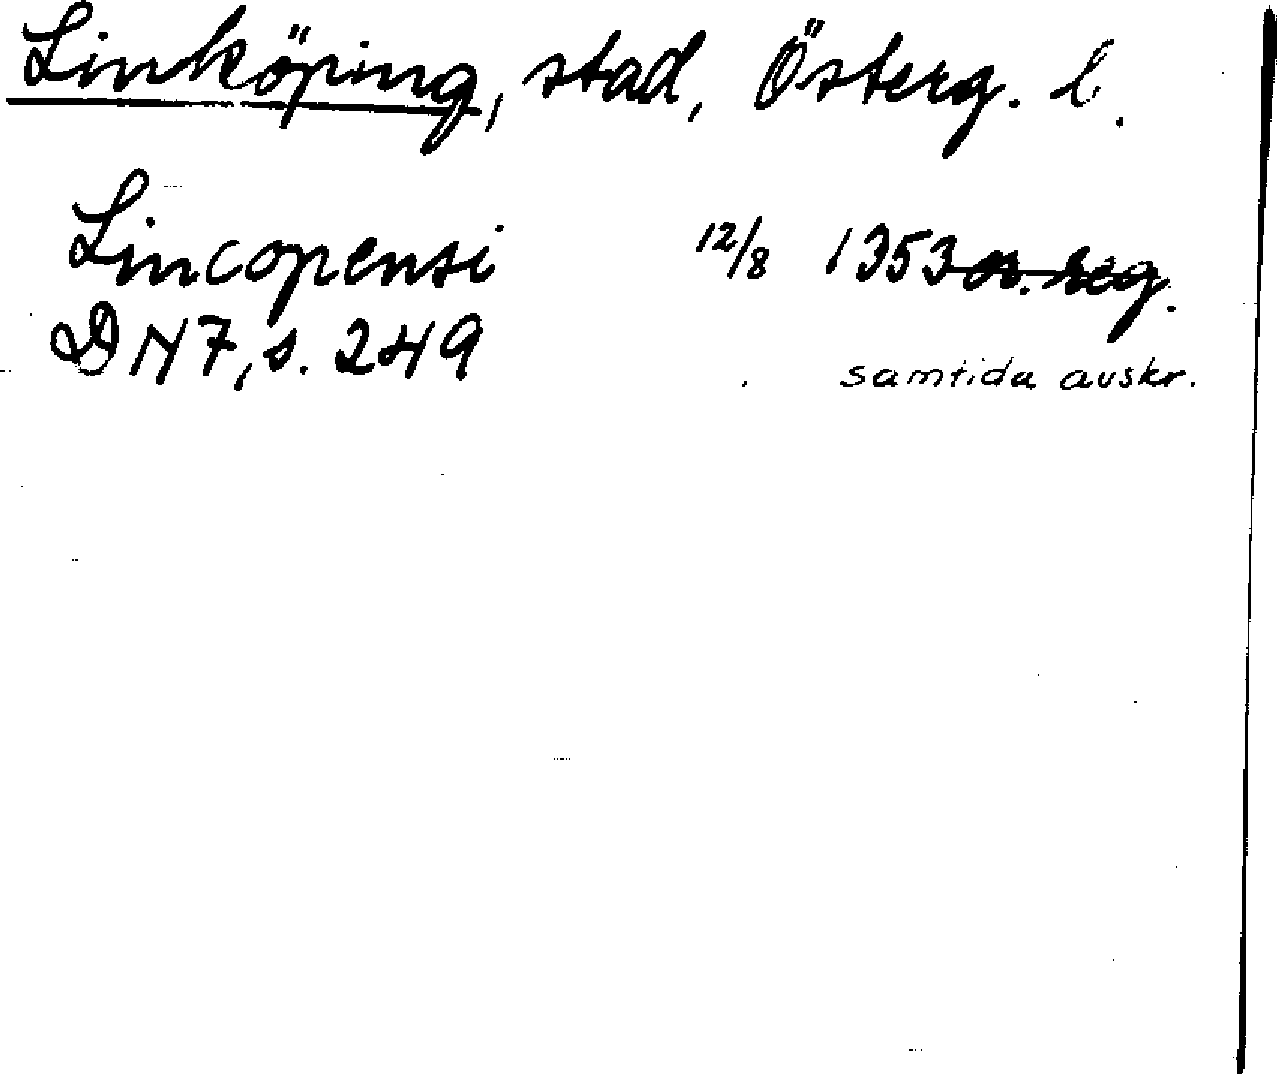 Linköping, stad, Österg. l.
Lincopensi 12/8 1353 or. reg.
DN 7, s. 249
samtida avskr.